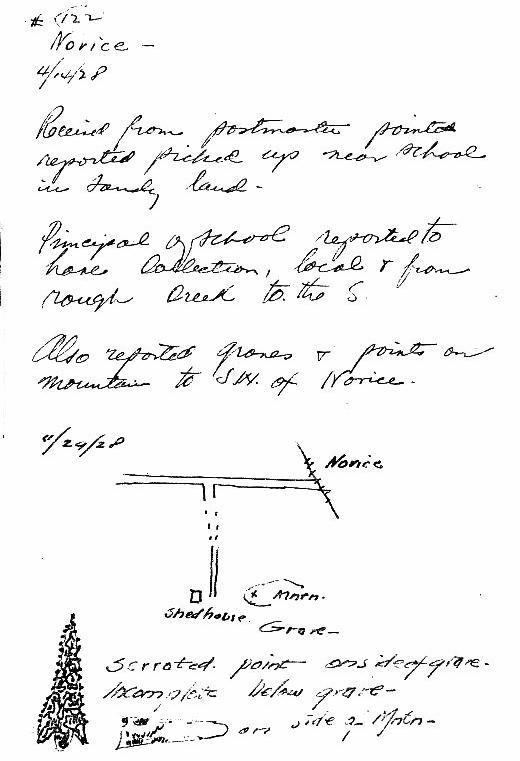 # 122
Novice -
4/14/28
Received from postmaster pointed
reported picked up near school
in sandy land -
Principal of school reported to
have Collection, local & from
rough Creek to the S.
Also reported graves & points on
mountain to S.W. of Novice.
4/29/28
Novice
Mntn.
Shedhouse
Grave -
Serrated point on side of grave -
Incomplete below grave -
on side of Mntn -